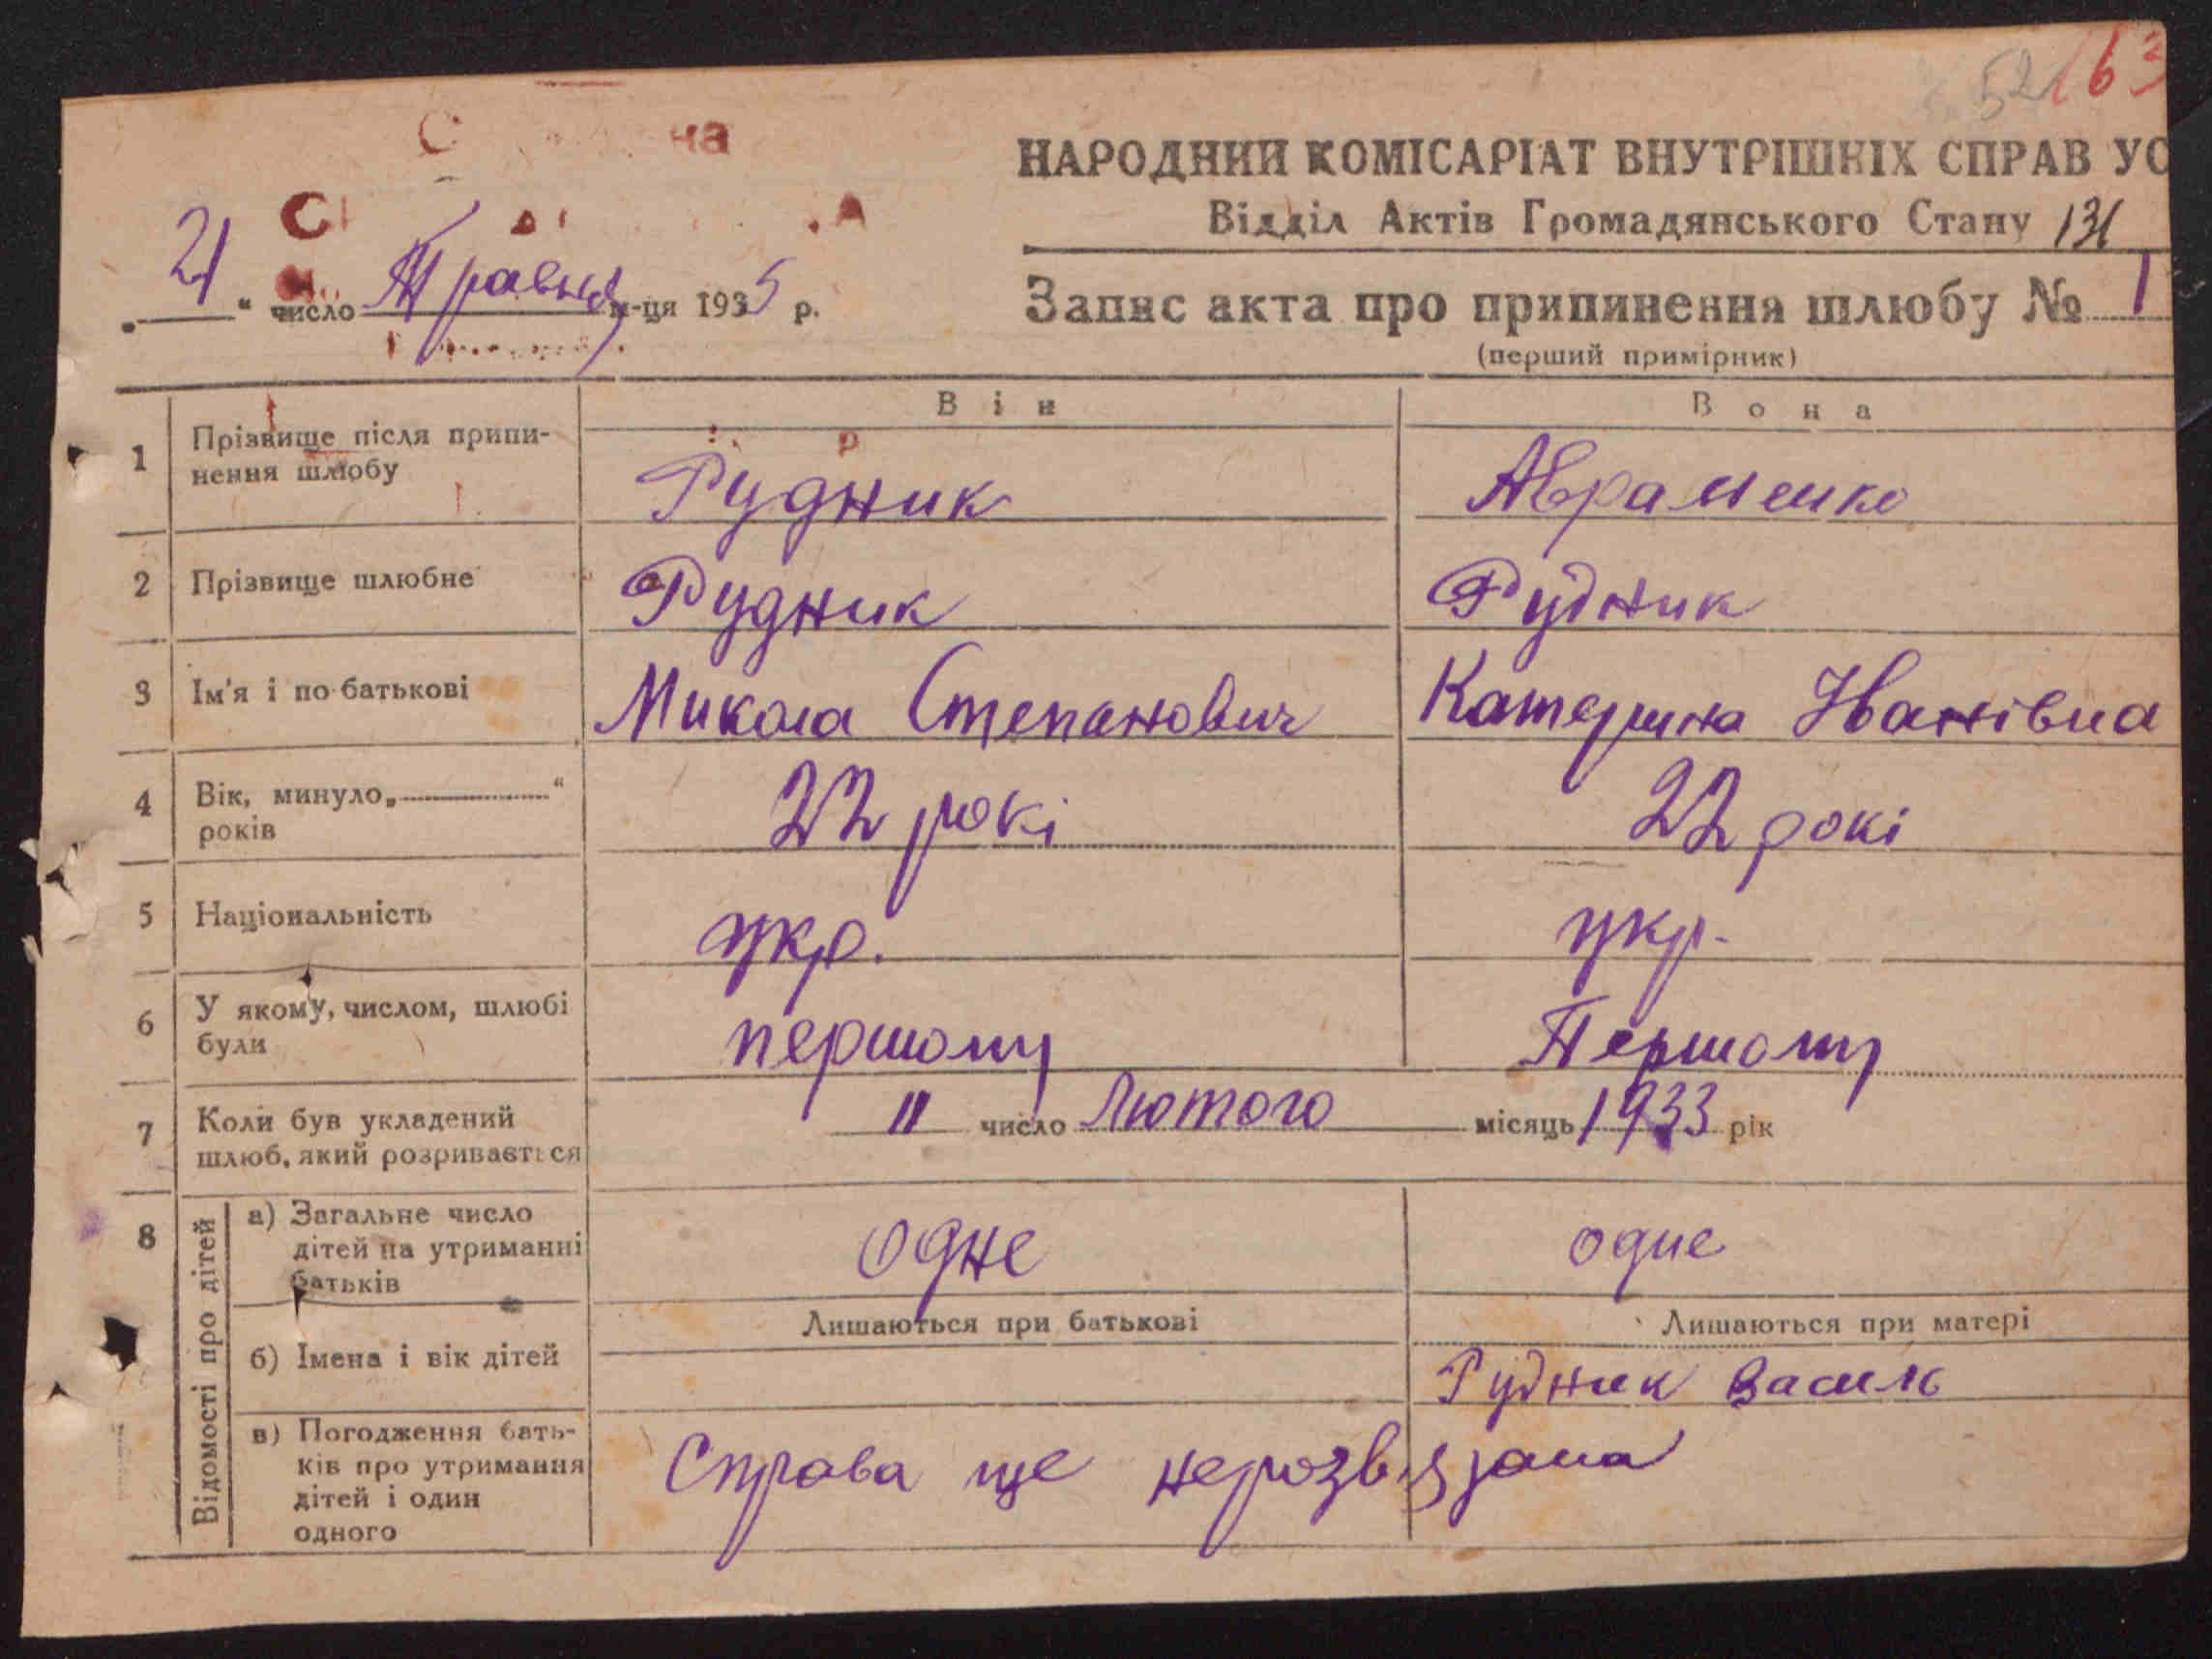 52 163
НАРОДНИЙ КОМІСАРІАТ ВНУТРІШНІХ СПРАВ УС
Відділ Актів Громадянського Стану 131
„21“ число Травня м-ця 1935 р.
Запис акта про припинення шлюбу № 1
(перший примірник)
Він Вона
1 Прізвище після припи-
нення шлюбу Рудник Авраменко
2 Прізвище шлюбне Рудник Рудник
3 Ім'я і по батькові Микола Степанович Катерина Іванівна
4 Вік, минуло „ “
років 22 рокі 22 рокі
5 Національність укр. укр.
6 У якому, числом, шлюбі
були першому Першому
7 Коли був укладений
шлюб, який розривається 11 число Лютого місяць 1933 рік
8 Відомості про дітей
а) Загальне число
дітей на утриманні
батьків одне одне
Лишаються при батькові Лишаються при матері
б) Імена і вік дітей Рудник Василь
в) Погодження бать-
ків про утримання
дітей і один
одного Справа ще нерозвязана